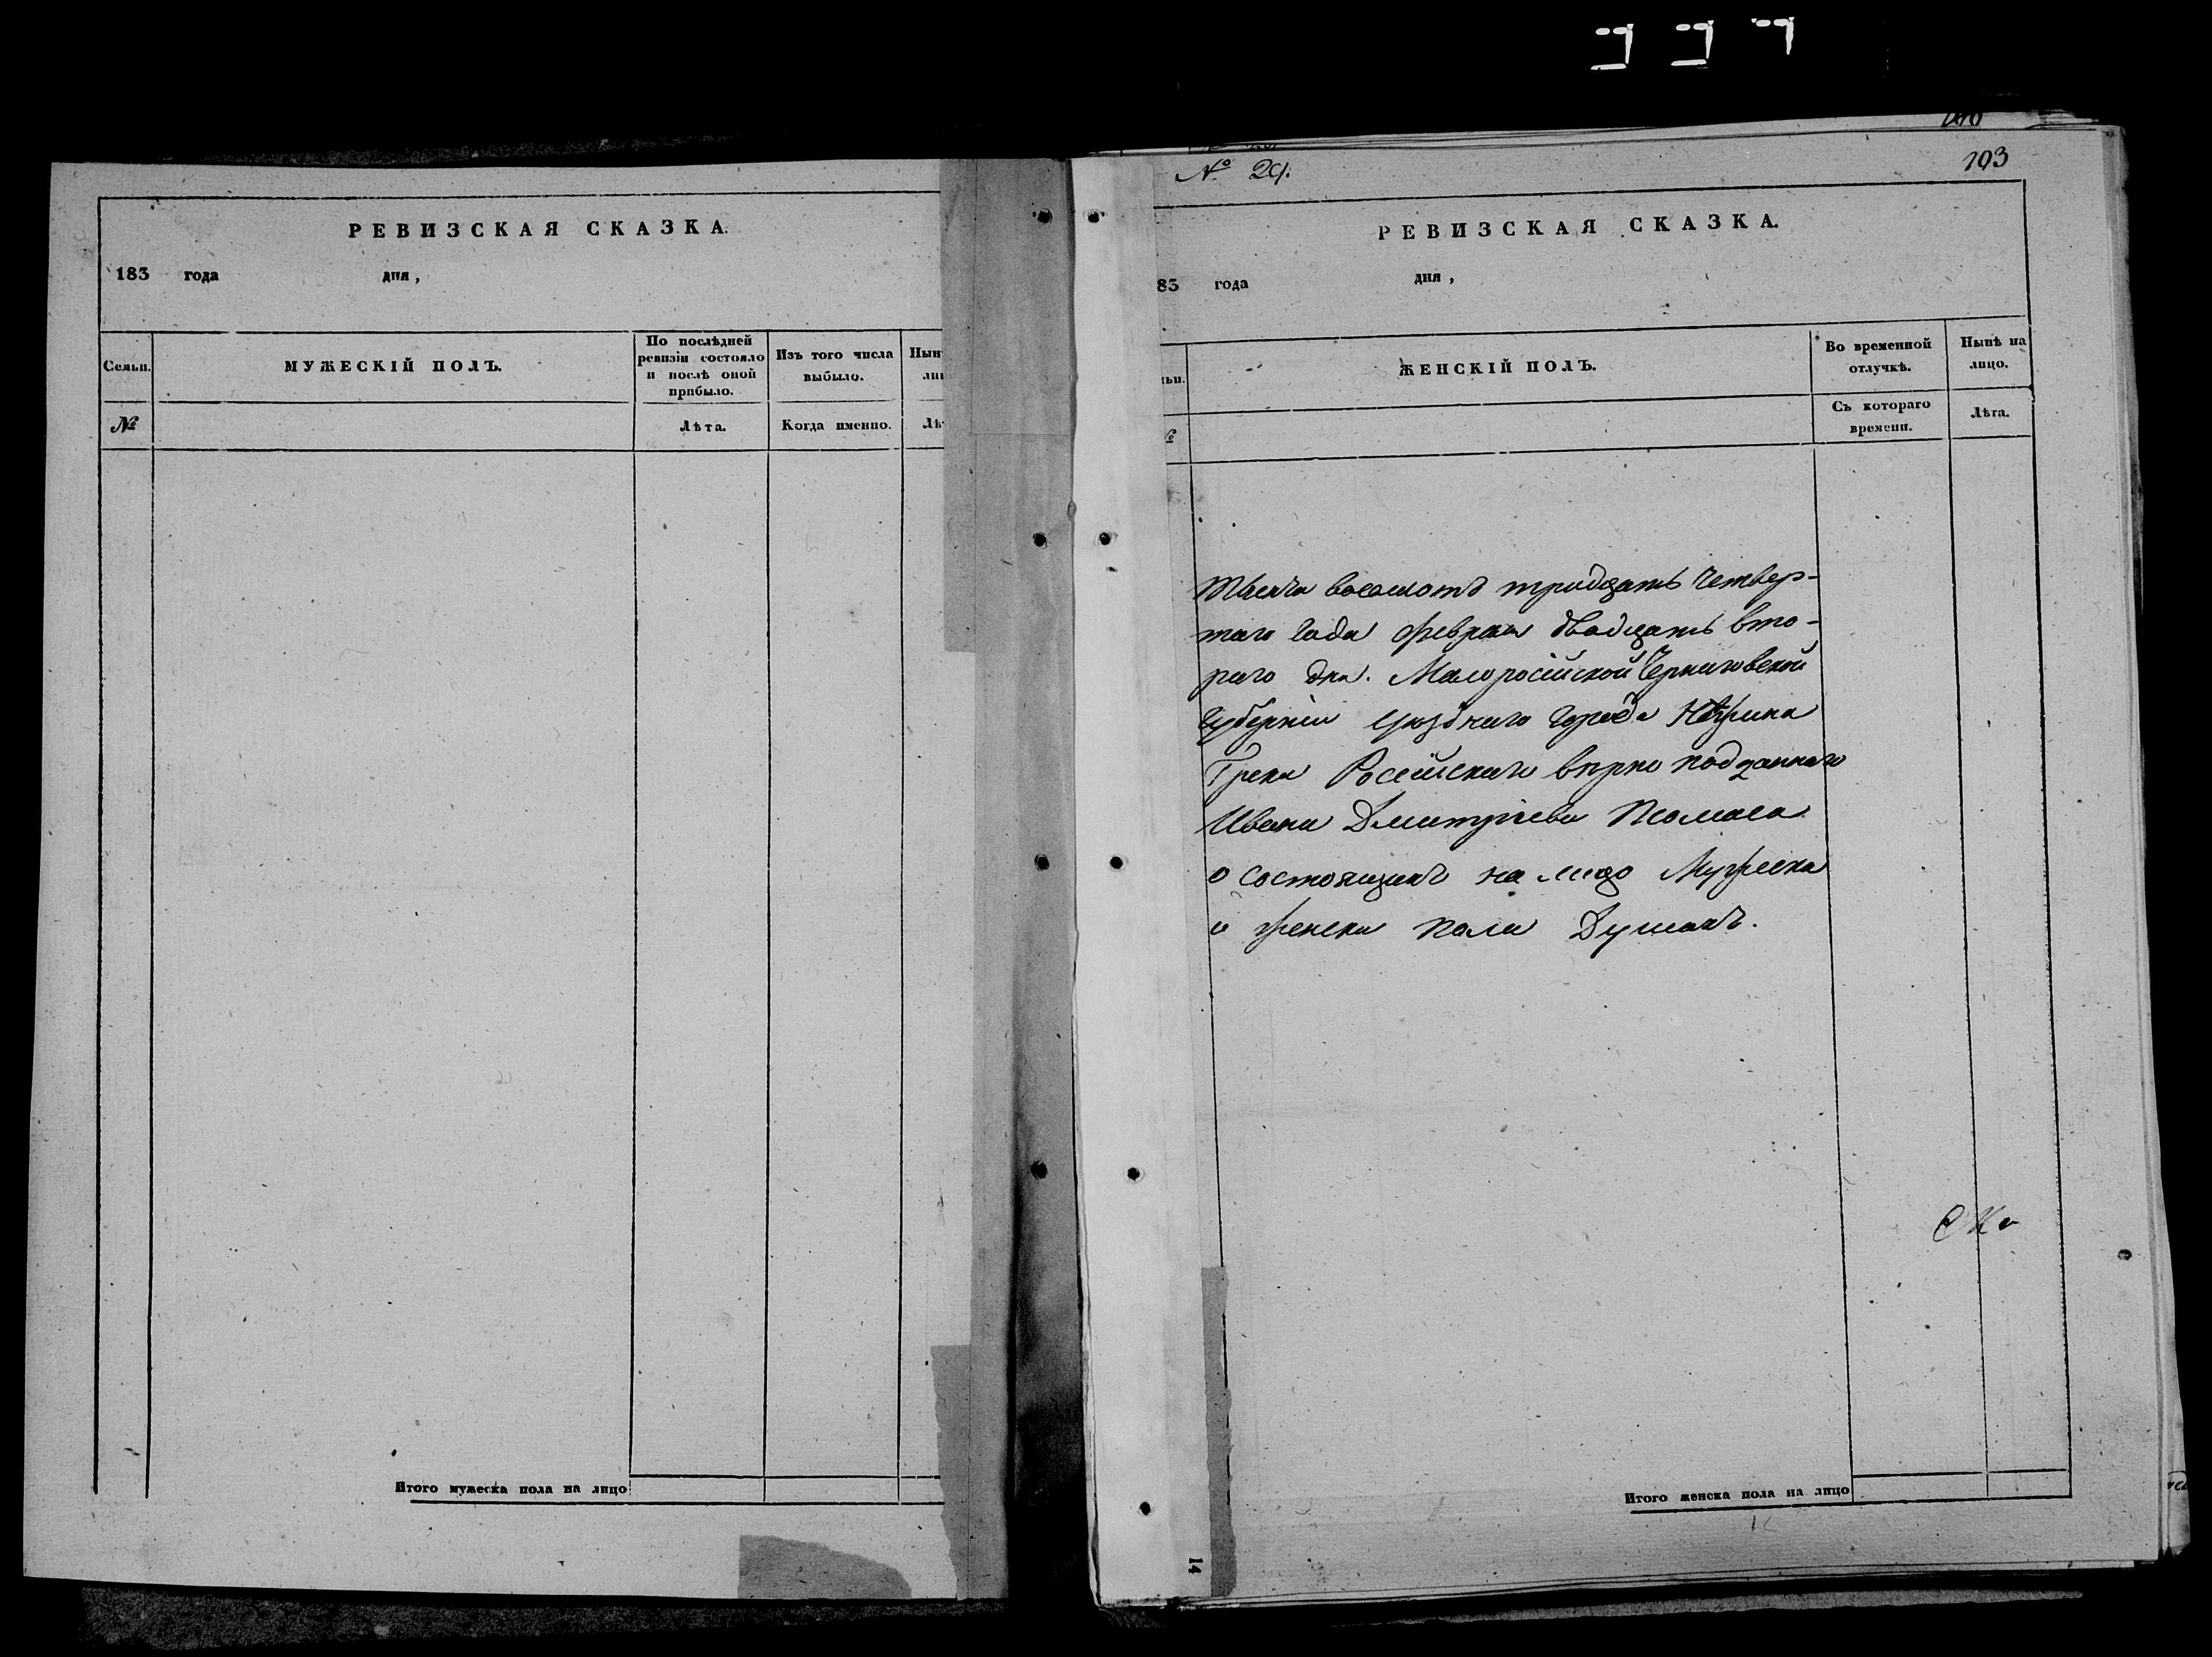 РЕВИЗСКАЯ СКАЗКА.
183 года дня,
Семьи.
МУЖЕСКІЙ ПОЛЪ.
По послѣдней
ревизіи состояло
и послѣ оной
прибыло.
Изъ того числа
выбыло.
№
Лѣта.
Когда именно.
Итого мужеска пола на лицо
№ 29.
193
РЕВИЗСКАЯ СКАЗКА.
83 года дня,
ЖЕНСКІЙ ПОЛЪ.
Во временной
отлучкѣ.
Нынѣ на
лицо.
Съ котораго
времени.
Лѣта.
Тысяча восемсотъ тридцать четвер-
таго года февраля двадцать вто-
раго дня. Малоросійской Черниговской
Губерніи уѣзднаго города Нѣжина
Грека Російскаго вѣрно подданаго
Ивана Дмитріева Псомаса
о состоящихъ на лицо Мужеска
и женска пола Душахъ.
Итого женска пола на лицо
14